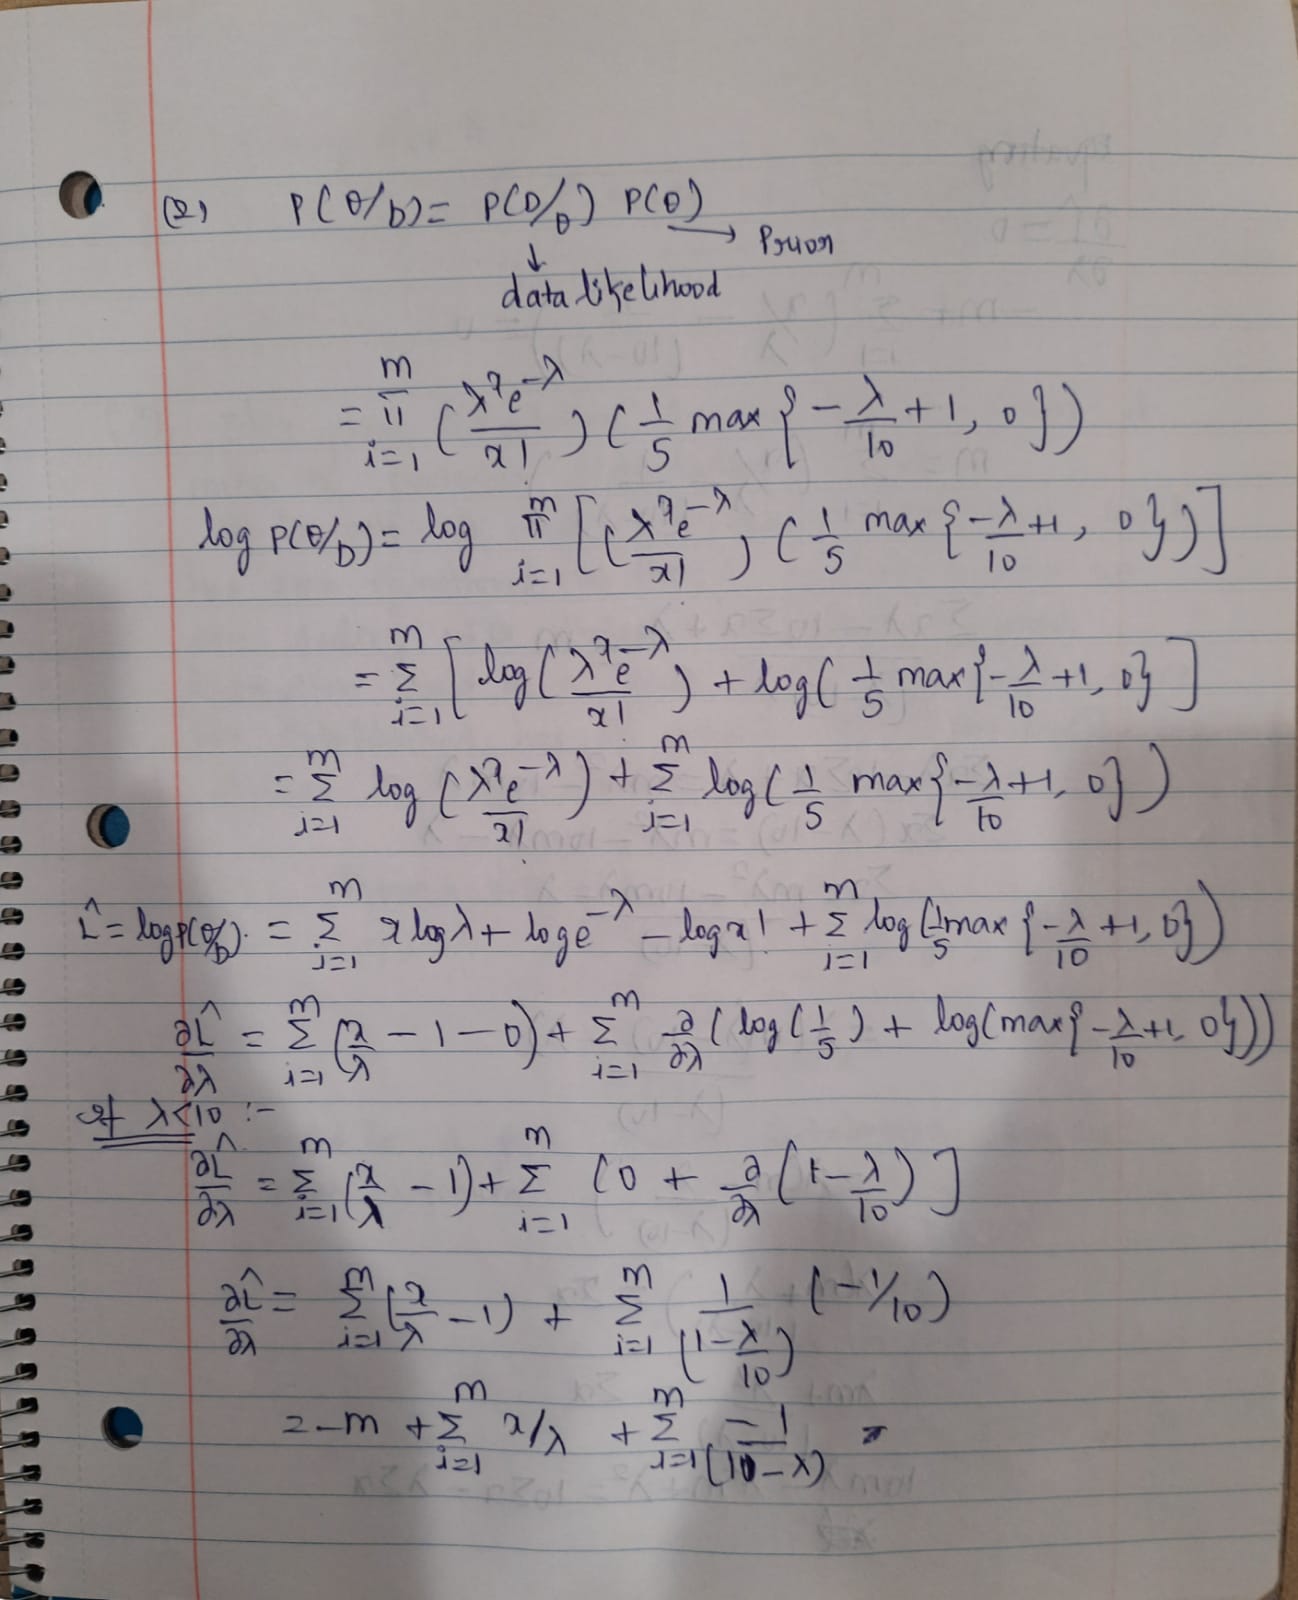 (2) P(θ/D) = P(D/θ) P(θ)
→ Prior
↓
data likelihood
= m π i=1 (λ^x e^-λ / x!) (1/5 max{-λ/10 + 1, 0})
log P(θ/D) = log m π i=1 [(λ^x e^-λ / x!) (1/5 max{-λ/10 + 1, 0})]
= m Σ i=1 [log(λ^x e^-λ / x!) + log(1/5 max{-λ/10 + 1, 0}]
= m Σ i=1 log(λ^x e^-λ / x!) + m Σ i=1 log(1/5 max{-λ/10 + 1, 0})
L̂ = log P(θ/D) = m Σ i=1 x log λ + log e^-λ - log x! + m Σ i=1 log(1/5 max{-λ/10 + 1, 0})
∂L̂/∂λ = m Σ i=1 (x/λ - 1 - 0) + m Σ i=1 ∂/∂λ (log(1/5) + log(max{-λ/10 + 1, 0}))
If λ<10 :-
∂L̂/∂λ = m Σ i=1 (x/λ - 1) + m Σ i=1 (0 + ∂/∂λ (1 - λ/10)]
∂L̂/∂λ = m Σ i=1 (x/λ - 1) + m Σ i=1 1/(1 - λ/10) (-1/10)
= -m + m Σ i=1 x/λ + m Σ i=1 -1/(10 - λ)